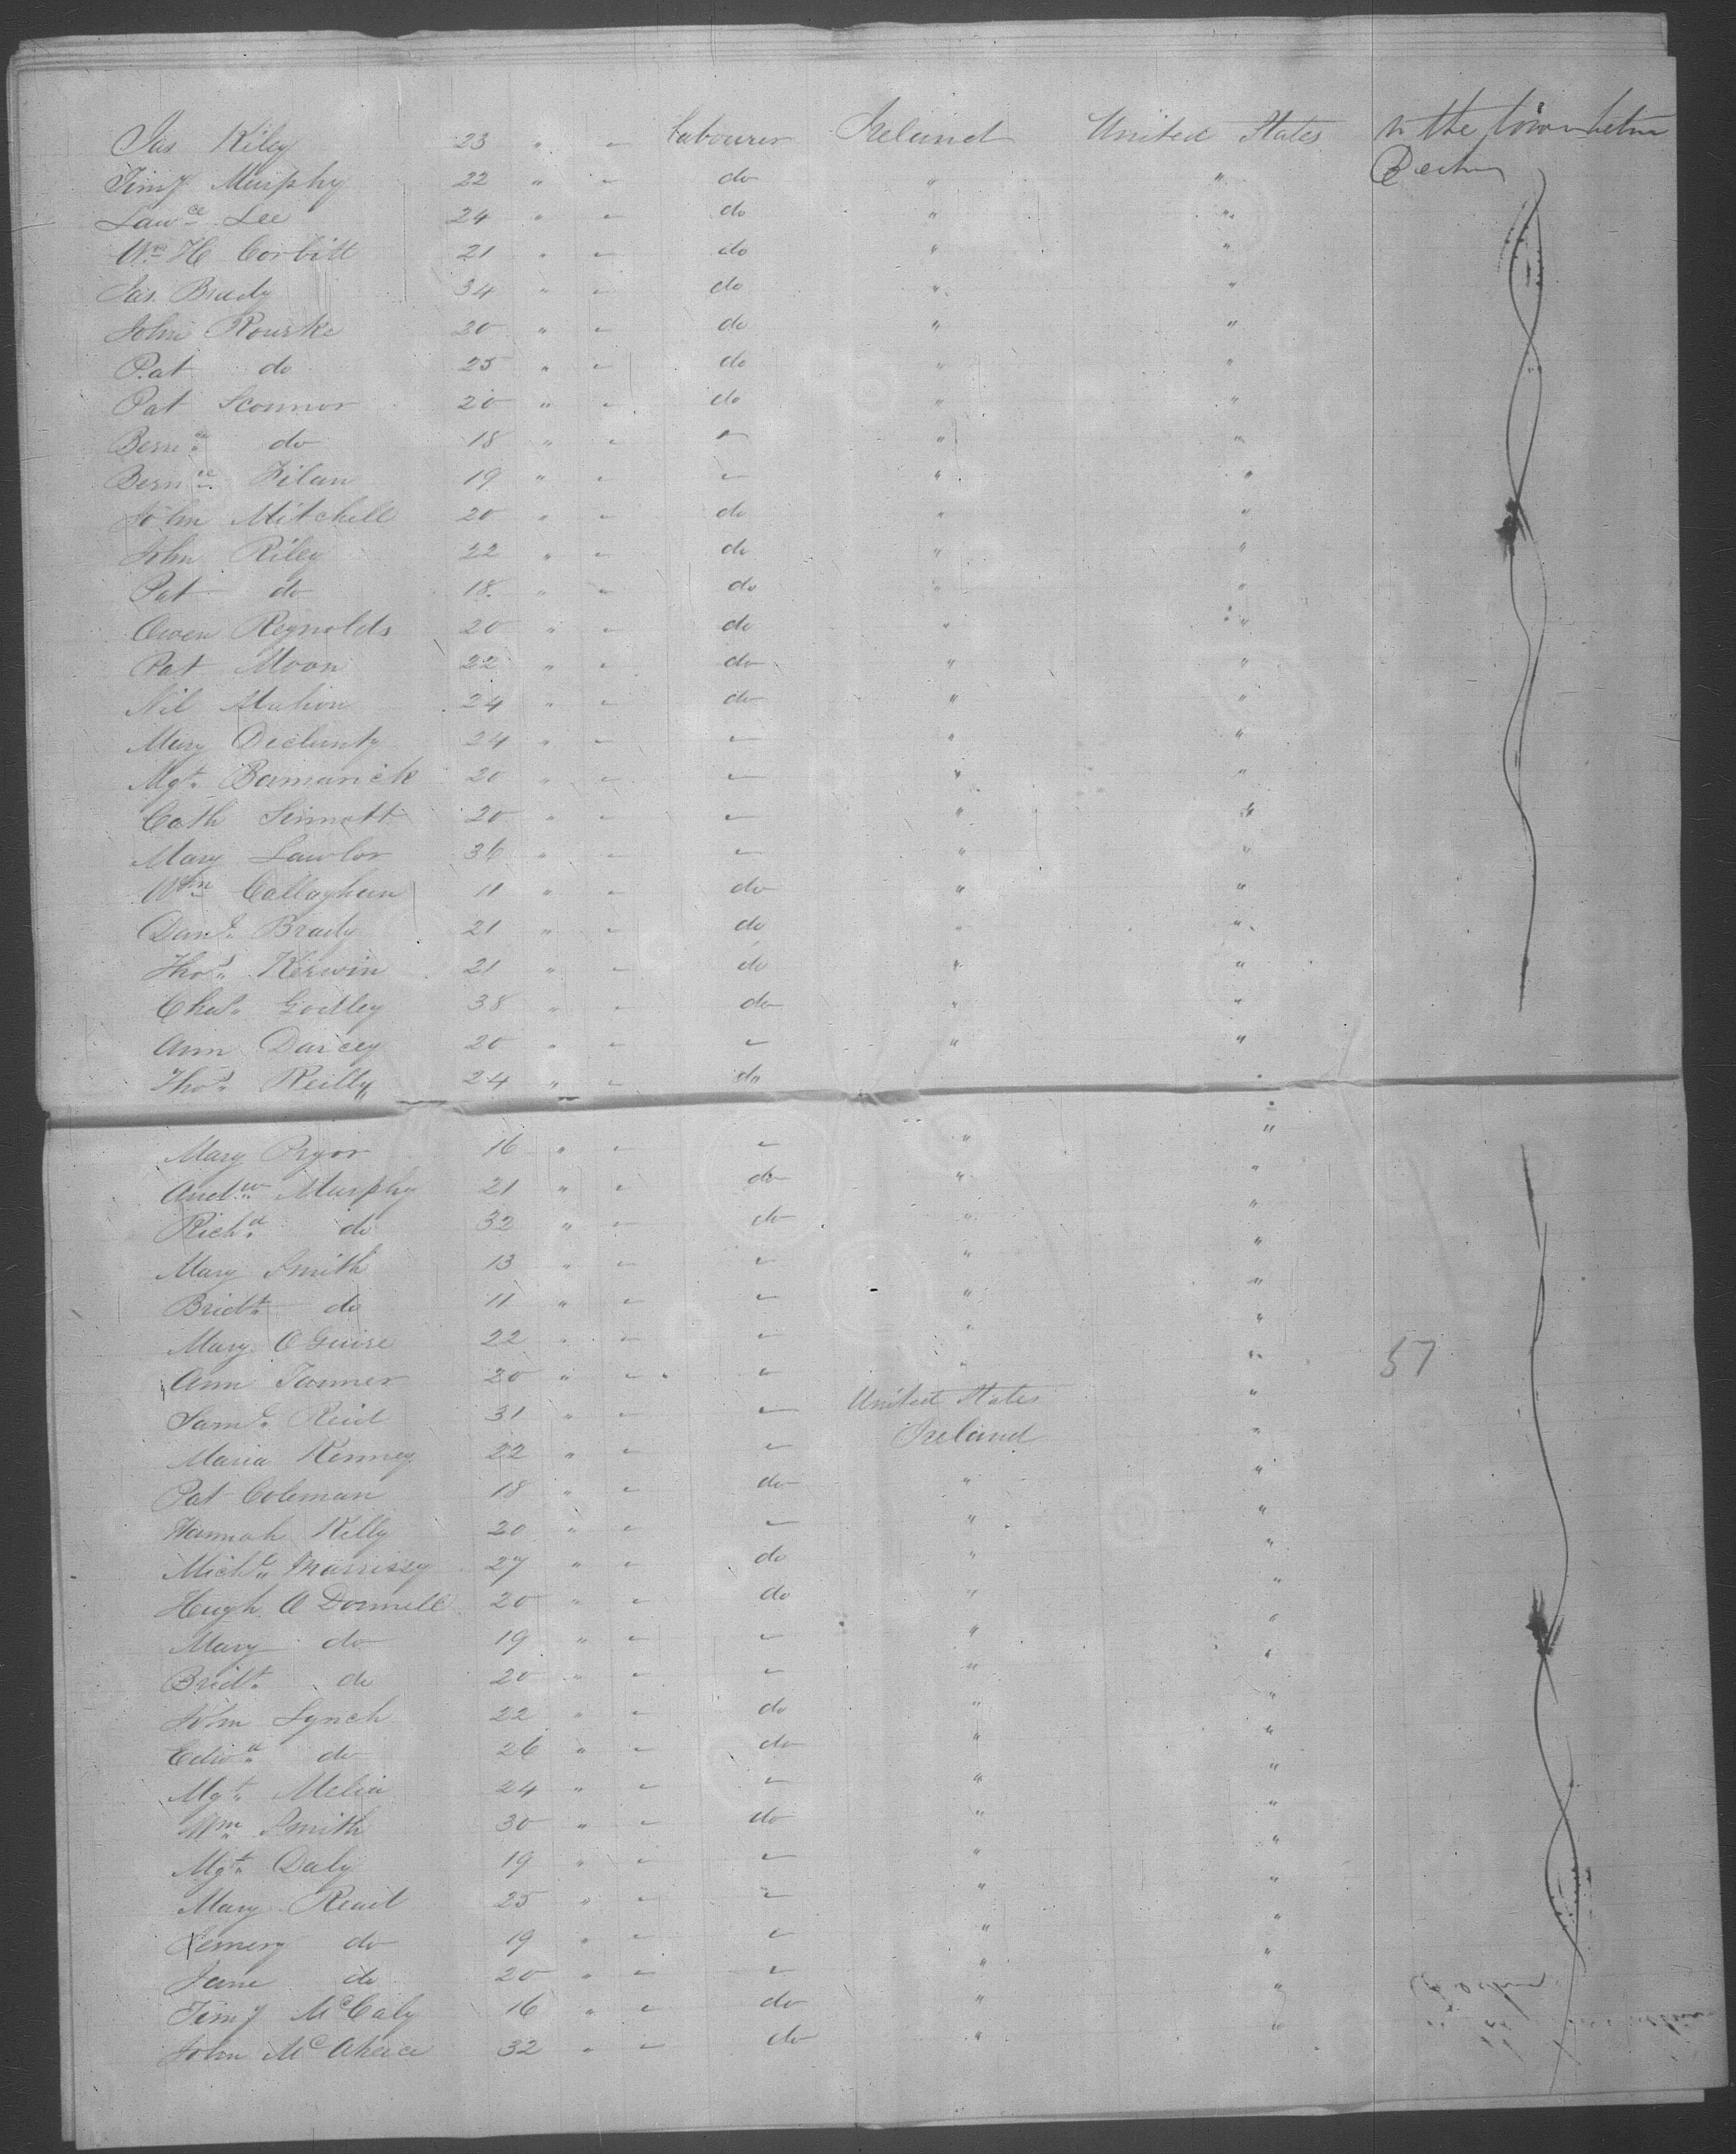 Jas Kiley 23 " " Labourer Ireland United States in the town between
Decks
Timy Murphy 22 " " do " "
Lawce Lee 24 " " do " "
Wm H Corbitt 21 " " do " "
Jas. Brady 34 " " do " "
John Rourke 20 " " do " "
Pat do 25 " " do " "
Pat Sconnor 20 " " do " "
Bernce do 18 " " " " "
Bernce Filan 19 " " " " "
John Mitchell 20 " " do " "
John Riley 22 " " do " "
Pat do 18 " " do " "
Owen Reynolds 20 " " do " "
Pat Moon 22 " " do " "
Nil Mahon 24 " " do " "
Mary Declunty 24 " " " " "
Mgt. Bamarick 20 " " " " "
Cath Sinnott 20 " " " " "
Mary Lawlor 36 " " " " "
Wm Callaghan 11 " " do " "
Danl. Brady 21 " " do " "
Thos. Kerwin 21 " " do " "
Chas. Godley 38 " " do " "
Ann Darcey 20 " " " " "
Thos. Reilly 24 " " do "
Mary Pryor 16 " " " " "
Andw. Murphy 21 " " do " "
Richd. do 32 " " do " "
Mary Smith 13 " " " " "
Bridt. do 11 " " " " "
Mary O Guire 22 " " " " "
Ann Tanner 20 " " " " " 57
Saml. Reid 31 " " " United States "
Maria Kenney 22 " " " Ireland "
Pat Coleman 18 " " do " "
Hannah Kelly 20 " " " " "
Michl. Morrissy 27 " " do " "
Hugh O Donnell 20 " " do " "
Mary do 19 " " " " "
Bridt. do 20 " " " " "
John Lynch 22 " " do " "
Edwd. do 26 " " do " "
Mgt. Melia 24 " " " " "
Wm Smith 30 " " do " "
Mgt. Daly 19 " " " " "
Mary Read 25 " " " " "
do 19 " " " " "
Jane do 20 " " " " "
Timy McCaly 16 " " do " "
John Mc 32 " " do " "